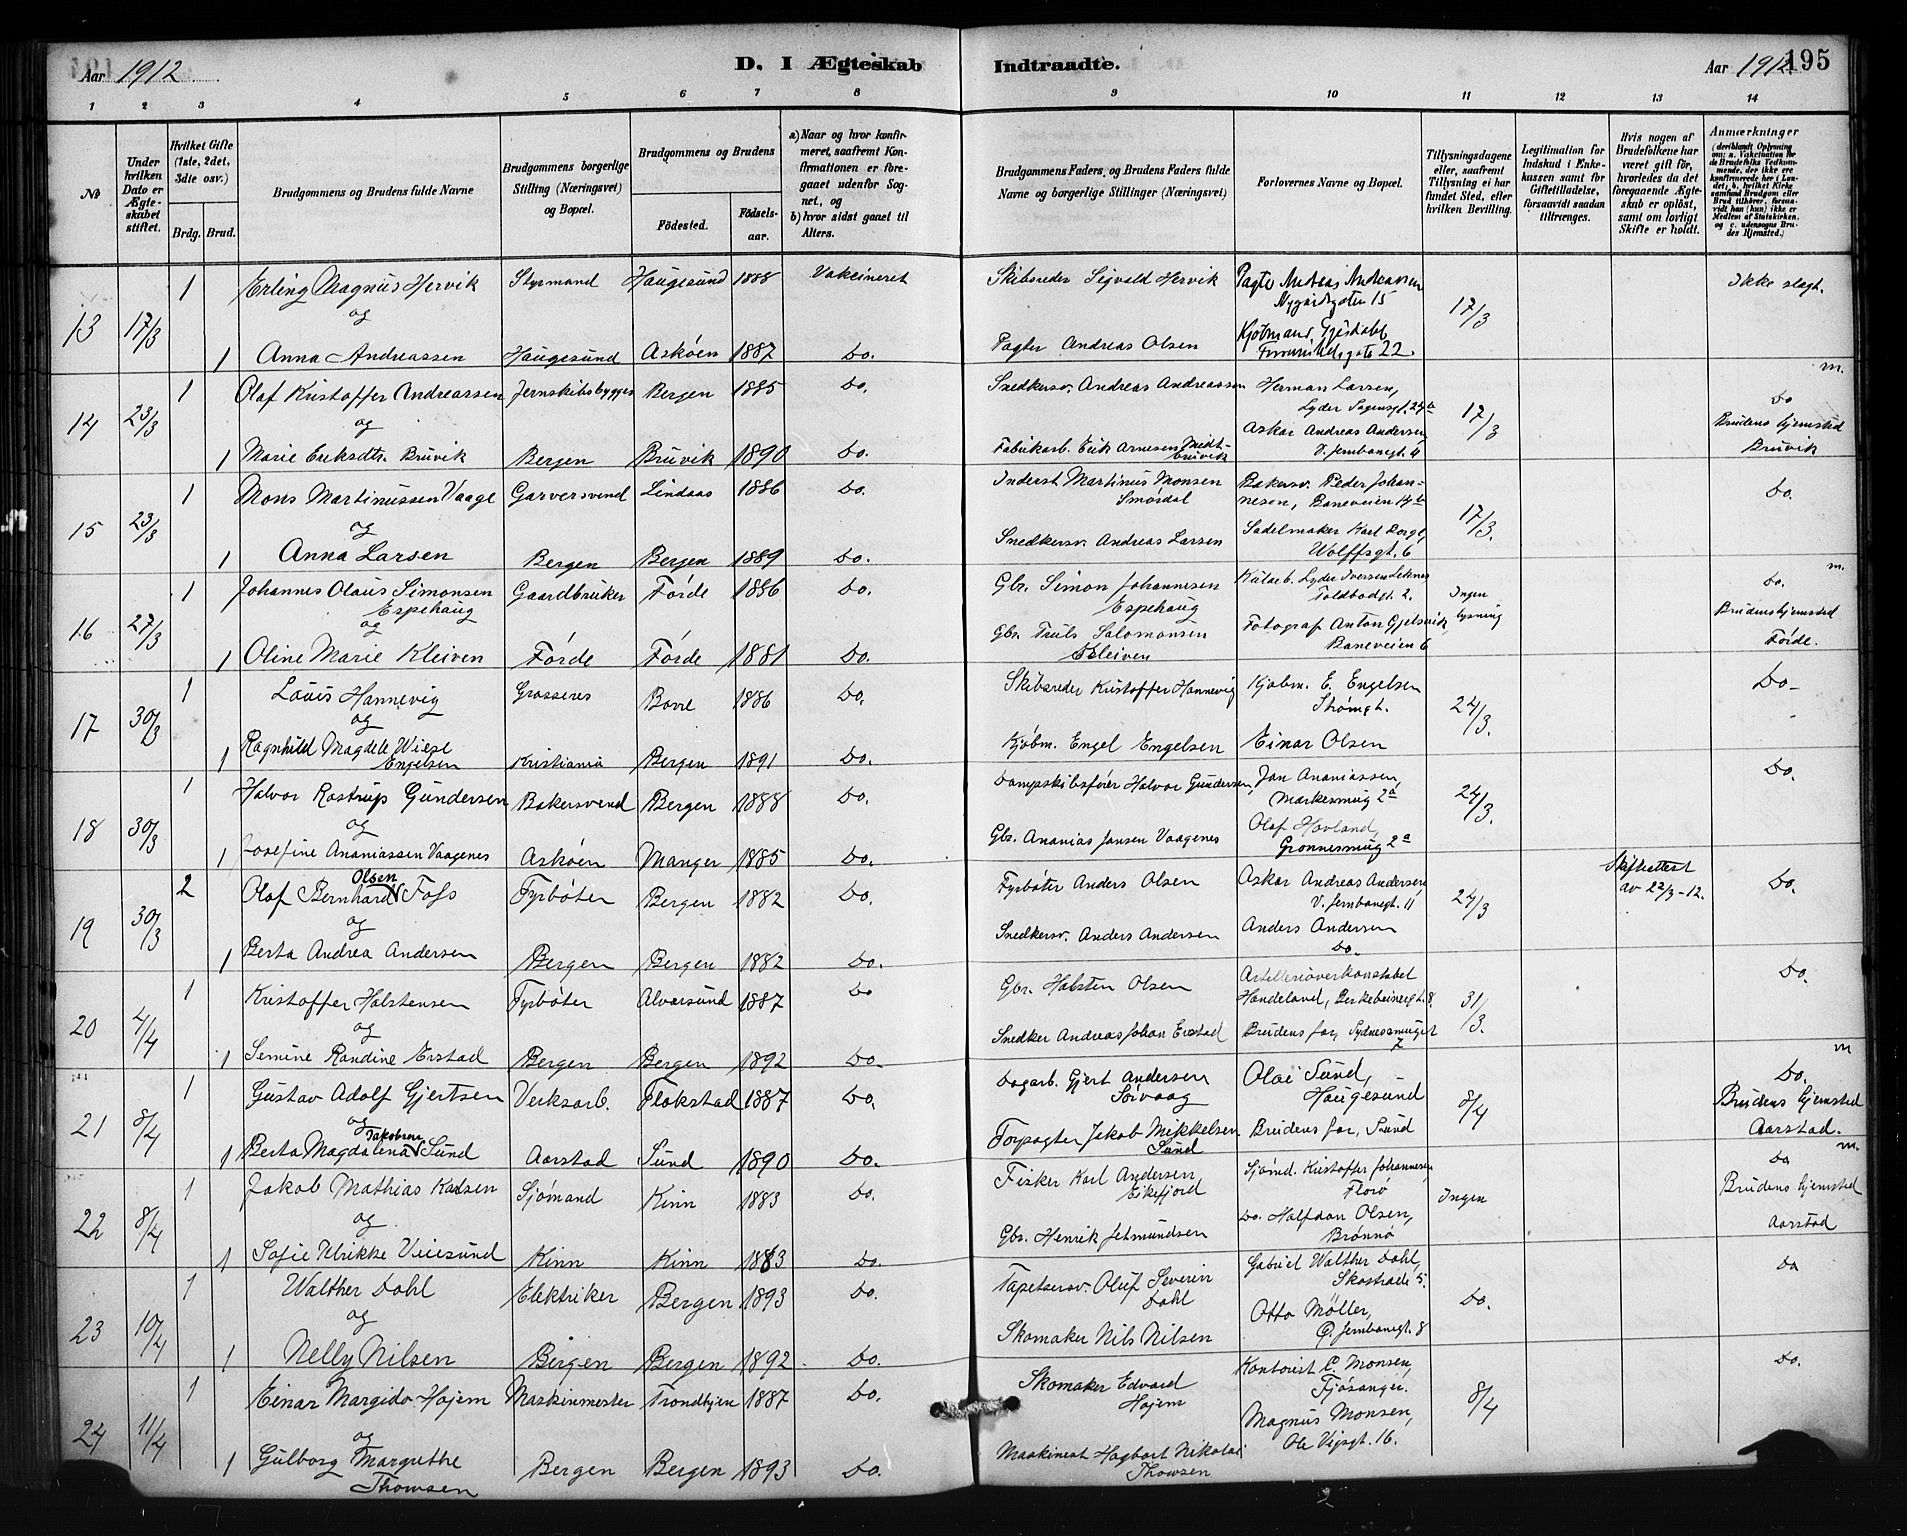 Aar 1912
D. I Ægteskab
Indtraadte.
Aar 1912
195
1 2 3 4 5 6 7 8 9 10 11 12 13 14
№
Under hvilken Dato er Ægteskabet stiftet.
Hvilket Gifte (1ste, 2det, 3die osv.)
Brdg. Brud.
Brudgommens og Brudens fulde Navne
Brudgommens borgerlige Stilling (Næringsvei) og Bopæl.
Brudgommens og Brudens
Födested.
Födselsaar.
a) Naar og hvor konfirmeret, saafremt Konfirmationen er foregaaet udenfor Sognet, og
b) hvor sidst gaaet til Alters.
Brudgommens Faders og Brudens Faders fulde Navne og borgerlige Stillinger (Næringsvei)
Forlovernes Navne og Bopæl.
Tillysningsdagene eller, saafremt Tillysning ei har fundet Sted, efter hvilken Bevilling.
Legitimation for Indskud i Enkekassen samt for Giftetilladelse, forsaavidt saadan tiltrenges.
Hvis nogen af Brudefolkene har været gift för, hvorledes da det foregaaende Ægteskab er oplöst, samt om lovligt Skifte er holdt.
Anmærkninger (deriblandt Oplysning om: a. Vakcination for de Brudefolks Vedkommende, der ikke ere konfirmerede her i Landet; b. hvilket Kirkesamfund Brudgom eller Brud tilhörer, forsaavidt han (hun) ikke er Medlem af Statskirken. og c. udensogns Brudes Hjemsted.)
13 17/3 1 Erling Magnus Hervik Styrmand Haugesund 1888 Vakcineret Skibsreder Sigvald Hervik Pagter Andreas Andreassen Nygårdsgaten 15 17/3 Ikke slegt.
og
1 Anna Andreassen Haugesund Askøen 1887 Do. Pagter Andreas Olsen Kjøbmand
14 23/3 1 Olaf Kristoffer Andreassen Jernskibsbygger Bergen 1885 Do. Snedkersv. Andreas Andreassen Herman Larsen, Lyder Sagensgt. 17/3 Do
og
1 Marie Eriksdtr. Bruvik Bergen Bruvik 1890 Do. Fabrikarb. Erik Arnesen Midt-Bruvik Askar Andreas Andersen V. Jernbanegt. Brudens hjemsted Bruvik
m.
15 23/3 1 Mons Martinussen Vaage Garversvend Lindaas 1886 Do. Inderst Martinus Monsen Smørdal Bakersv. Peder Johannesen, Baneveien 17/3. Do.
og
1 Anna Larsen Bergen Bergen 1889 Do. Snedkersv. Andreas Larsen Sadelmaker Karl Wolffsgt. 6
16 27/3 1 Johannes Olaus Simonsen Espehaug Gaardbruker Førde 1886 Do. Gbr. Simon Johannesen Espehaug Lyder Iversen Toldbodgt. 2. Ingen lysning Do.
og
1 Oline Marie Kleiven Førde Førde 1881 Do. Gbr. Truls Salomonsen Kleiven Fotograf Anton Gjelsvik, Baneveien 6 Brudens hjemsted Førde.
m.
17 30/3 1 Louis Hannevig Grosserer Borre 1886 Do. Skibsreder Kristoffer Hannevig Kjøbm. E. Engelsen Strømgt. 24/3. Do
og
1 Ragnhild Magdele Wiese Engelsen Kristiania Bergen 1891 Do. Kjøbm. Engel Engelsen Einar Olsen
18 30/3 1 Halvor Rostrup Gundersen Bakersvend Bergen 1888 Do. Dampskibsfører Halvor Gundersen, Jan Ananiassen, Markesmug 2a 24/3. Do.
og
1 Josefine Ananiassen Vaagenes Askøen Manger 1885 Do. Gbr. Ananias Jansen Vaagenes Olaf Hovland, Grønnesmug 2a
19 30/3 2 Olaf Bernhard Olsen Foss Fyrbøter Bergen 1882 Do. Fyrbøter Anders Olsen Askar Andreas Andersen, V. Jernbanegt. 11 24/3 Skifteattest av 22/3-12. Do.
og
1 Berta Andrea Andersen Bergen Bergen 1882 Do. Snedkersv. Anders Andersen Anders Andersen Do.
20 4/4 1 Kristoffer Halstensen Fyrbøter Alversund 1887 Do Gbr. Halsten Olsen Artelleriøverkonstabel Handeland, 31/3. Do.
og
1 Semine Randine Erstad Bergen Bergen 1892 Do. Snedker Andreas Johan Erstad Brudens far, Sydnessmuget 7
21 8/4 1 Gustav Adolf Gjertsen Verksarb. Flekstad 1887 Do. Dagarb. Gjert Andersen Sørvaag Olai Sund, Haugesund 8/4 Do.
og
1 Berta Magdalena Jakobsen Sund Aarstad Sund 1890 Do. Forpagter Jakob Mikkelsen Sund Brudens far, Sund Brudens hjemsted Aarstad.
m
22 8/4 1 Jakob Mathias Karlsen Sjømand Kinn 1883 Do. Fisker Karl Andersen Eikefjord Sjømd. Kristoffer Johannesen, Florø Ingen Do
og
1 Sofie Ulrikke Viiesund Kinn Kinn 1883 Do. Gbr. Henrik Jetmundsen Do. Halfdan Olsen, Brønnø Brudens hjemsted Aarstad
m.
23 10/4 1 Walther Dahl Elektriker Bergen 1893 Do. Tapetsersv. Oluf Severin Dahl Gabriel Walther Dahl, Skostræde 5. Do. Do
og
1 Nelly Nilsen Bergen Bergen 1892 Do. Skomaker Nils Nilsen Otto Møller, Ø. Jernbanegt. 8
24 11/4 1 Einar Margido Højem Maskinmester Trondhjem 1887 Do. Skomaker Edvard Højem Kontorist C. Monsen, Fjøsanger. 8/4 Do.
og
1 Gulborg Margrethe Thowsen Bergen Bergen 1893 Do. Maskinest Hagbart Nikolai Thowsen Magnus Monsen, Ole Vigsgt. 16.